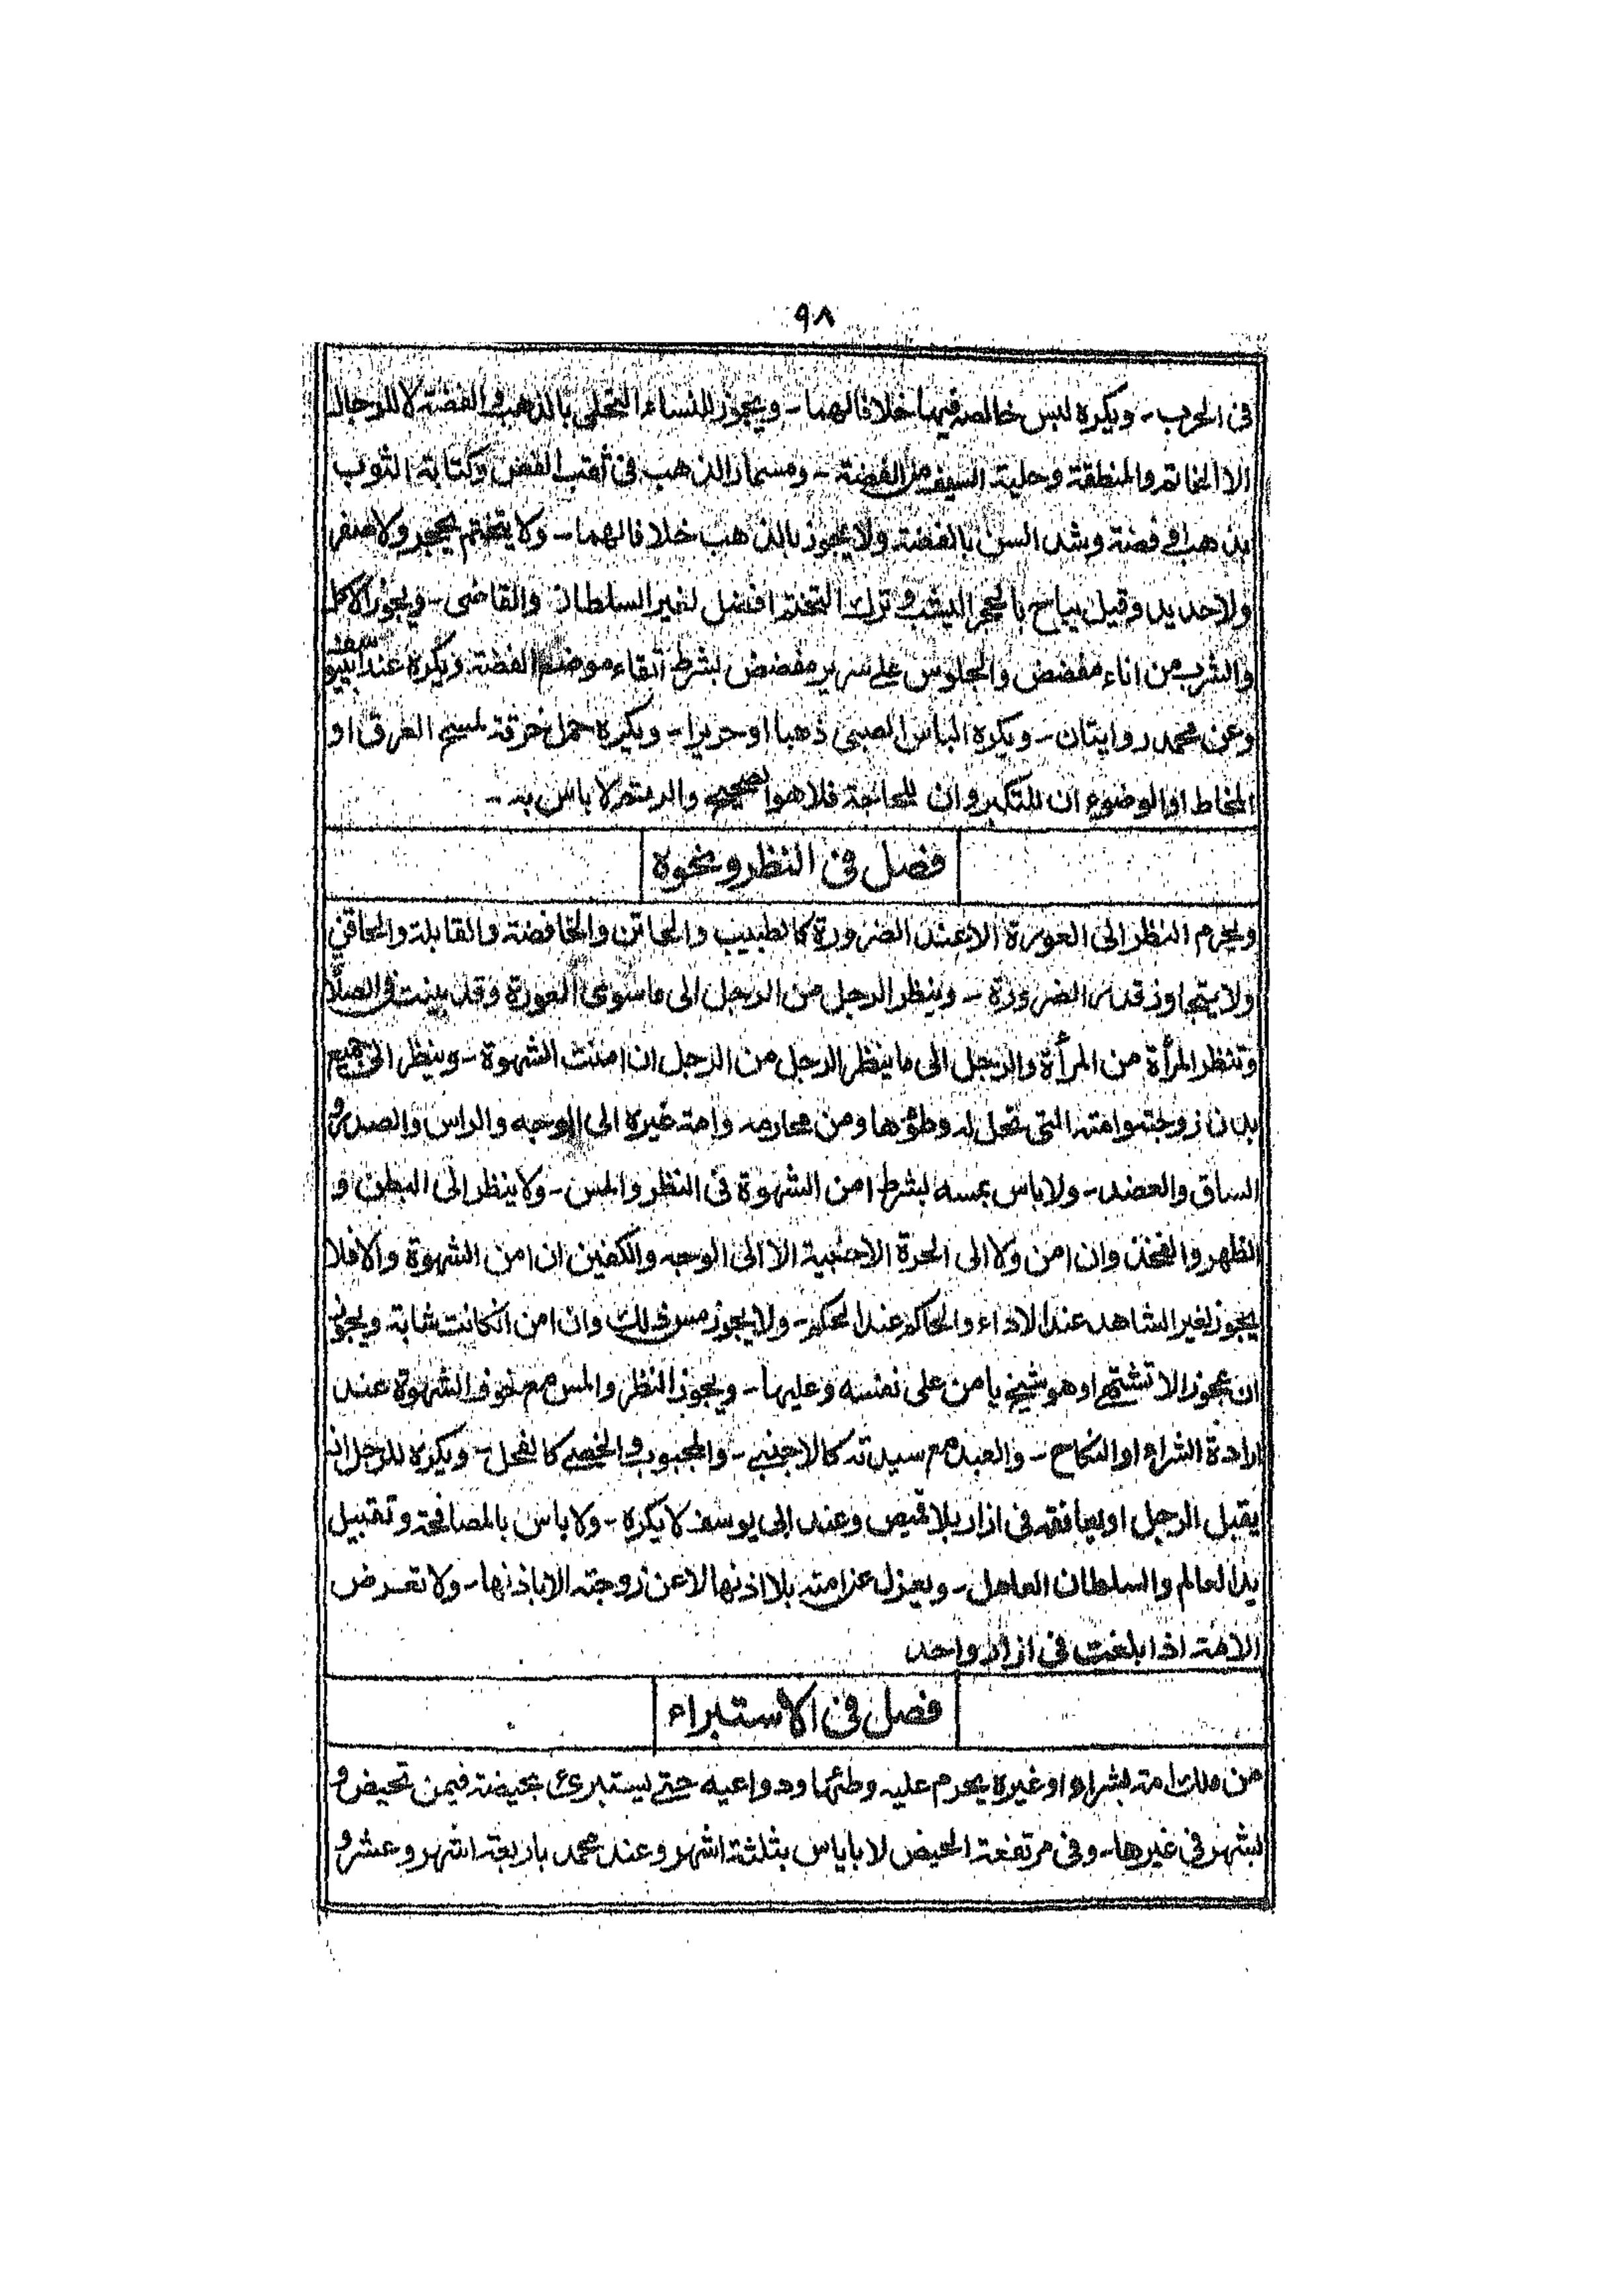 ٩٨
فى الحرب - ويكره لبس خالصه فيها خلافا لهما - ويجوز للنساء التحلى بالذهب والفضة لا للرجال
الا الخاتم والمنطقة وحلية السيف من الفضة - ومسمار الذهب فى ثقب الفص وكتابة الثوب
بذهب او فضة وشد السن بالفضة ولا يجوز بالذهب خلافا لهما - ولا يتختم بحجر ولا صفر
ولا حديد وقيل يباح بالحجر اليشب وترك التختم افضل لغير السلطان والقاضى - ويجوز الاكل
والشرب من اناء مفضض والجلوس على سرير مفضض بشرط اتقاء موضع الفضة ويكره عند ابى يوسف
وعن محمد روايتان - ويكره الباس الصبى ذهبا او حريرا - ويكره حمل خرقة لمسح العرق او
المخاط او الوضوء ان للتكبر وان للحاجة فلا هو الصحيح والرتم لا باس به -
فصل فى النظر ونحوه
ويحرم النظر الى العورة الا عند الضرورة كالطبيب والخاتن والخافضة والقابلة والحاقن
ولا يتجاوز قدر الضرورة - وينظر الرجل من الرجل الى ما سوى العورة وقد بينت فى الصلاة
وتنظر المرأة من المرأة والرجل الى ما ينظر الرجل من الرجل ان امنت الشهوة - وينظر الى جميع
بدن زوجته وامته التى تحل له وطؤها ومن محارمه وامة غيره الى الوجه والراس والصدر و
الساق والعضد - ولا باس بمسه بشرط امن الشهوة فى النظر والمس - ولا ينظر الى البطن و
الظهر والفخذ وان امن ولا الى الحرة الاجنبية الا الى الوجه والكفين ان امن الشهوة والا فلا
يجوز لغير الشاهد عند الاداء والحاكم عند الحكم - ولا يجوز مس ذلك وان امن ان كانت شابة ويجوز
ان عجوزا لا تشتهى او هو شيخ يامن على نفسه وعليها - ويجوز النظر والمس مع خوف الشهوة عند
ارادة الشراء او النكاح - والعبد مع سيدته كالاجنبى - والمجبوب والخصى كالفحل - ويكره للرجل ان
يقبل الرجل او يعانقه فى ازار بلا قميص وعند ابى يوسف لا يكره - ولا باس بالمصافحة وتقبيل
يد العالم والسلطان العادل - ويعزل عن امته بلا اذنها لا عن زوجته الا باذنها - ولا تعرض
الامة اذا بلغت فى ازار واحد
فصل فى الاستبراء
من ملك امة بشراء او غيره يحرم عليه وطئها ودواعيه حتى يستبرئ بحيضة فيمن تحيض و
بشهر فى غيرها - وفى مرتفعة الحيض لا باياس بثلثة اشهر وعند محمد باربعة اشهر وعشر و